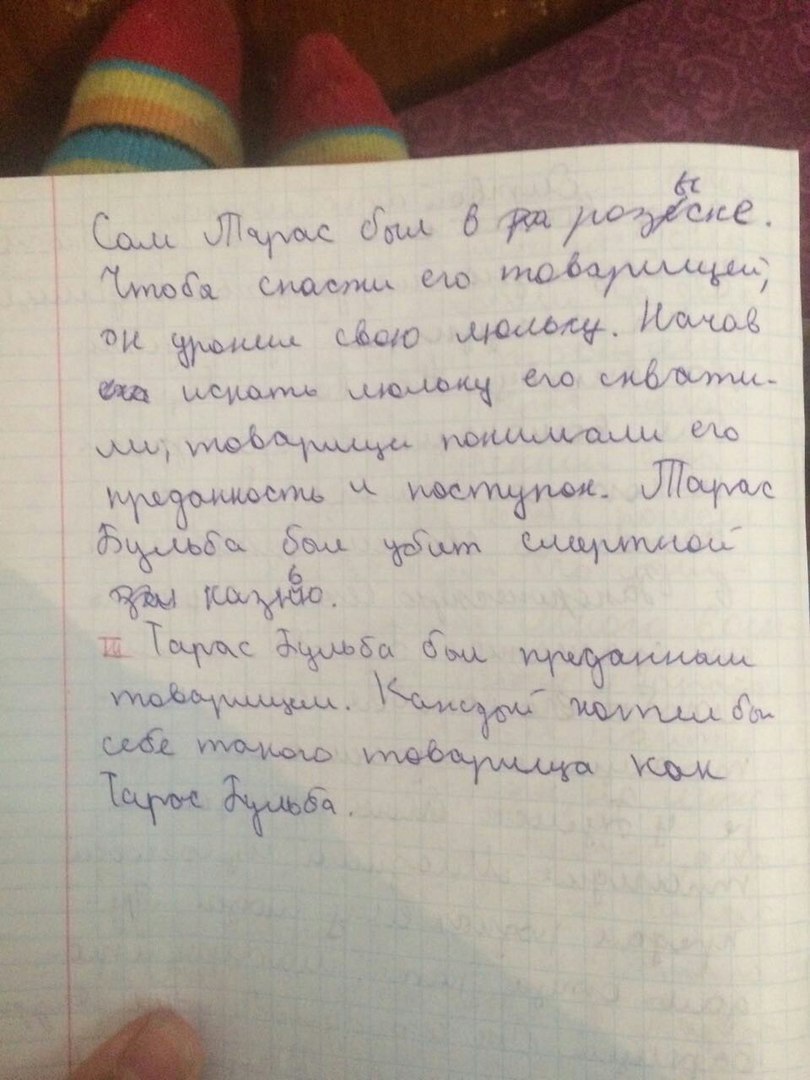 Сам Тарас был в розыске.
Чтобы спасти его товарищей,
он уронил свою люльку. Начав
искать люльку его схвати-
ли, товарищи понимали его
преданность и поступок. Тарас
Бульба был убит смертной
казнью.
III Тарас Бульба был преданным
товарищем. Каждый хотел бы
себе такого товарища как
Тарас Бульба.